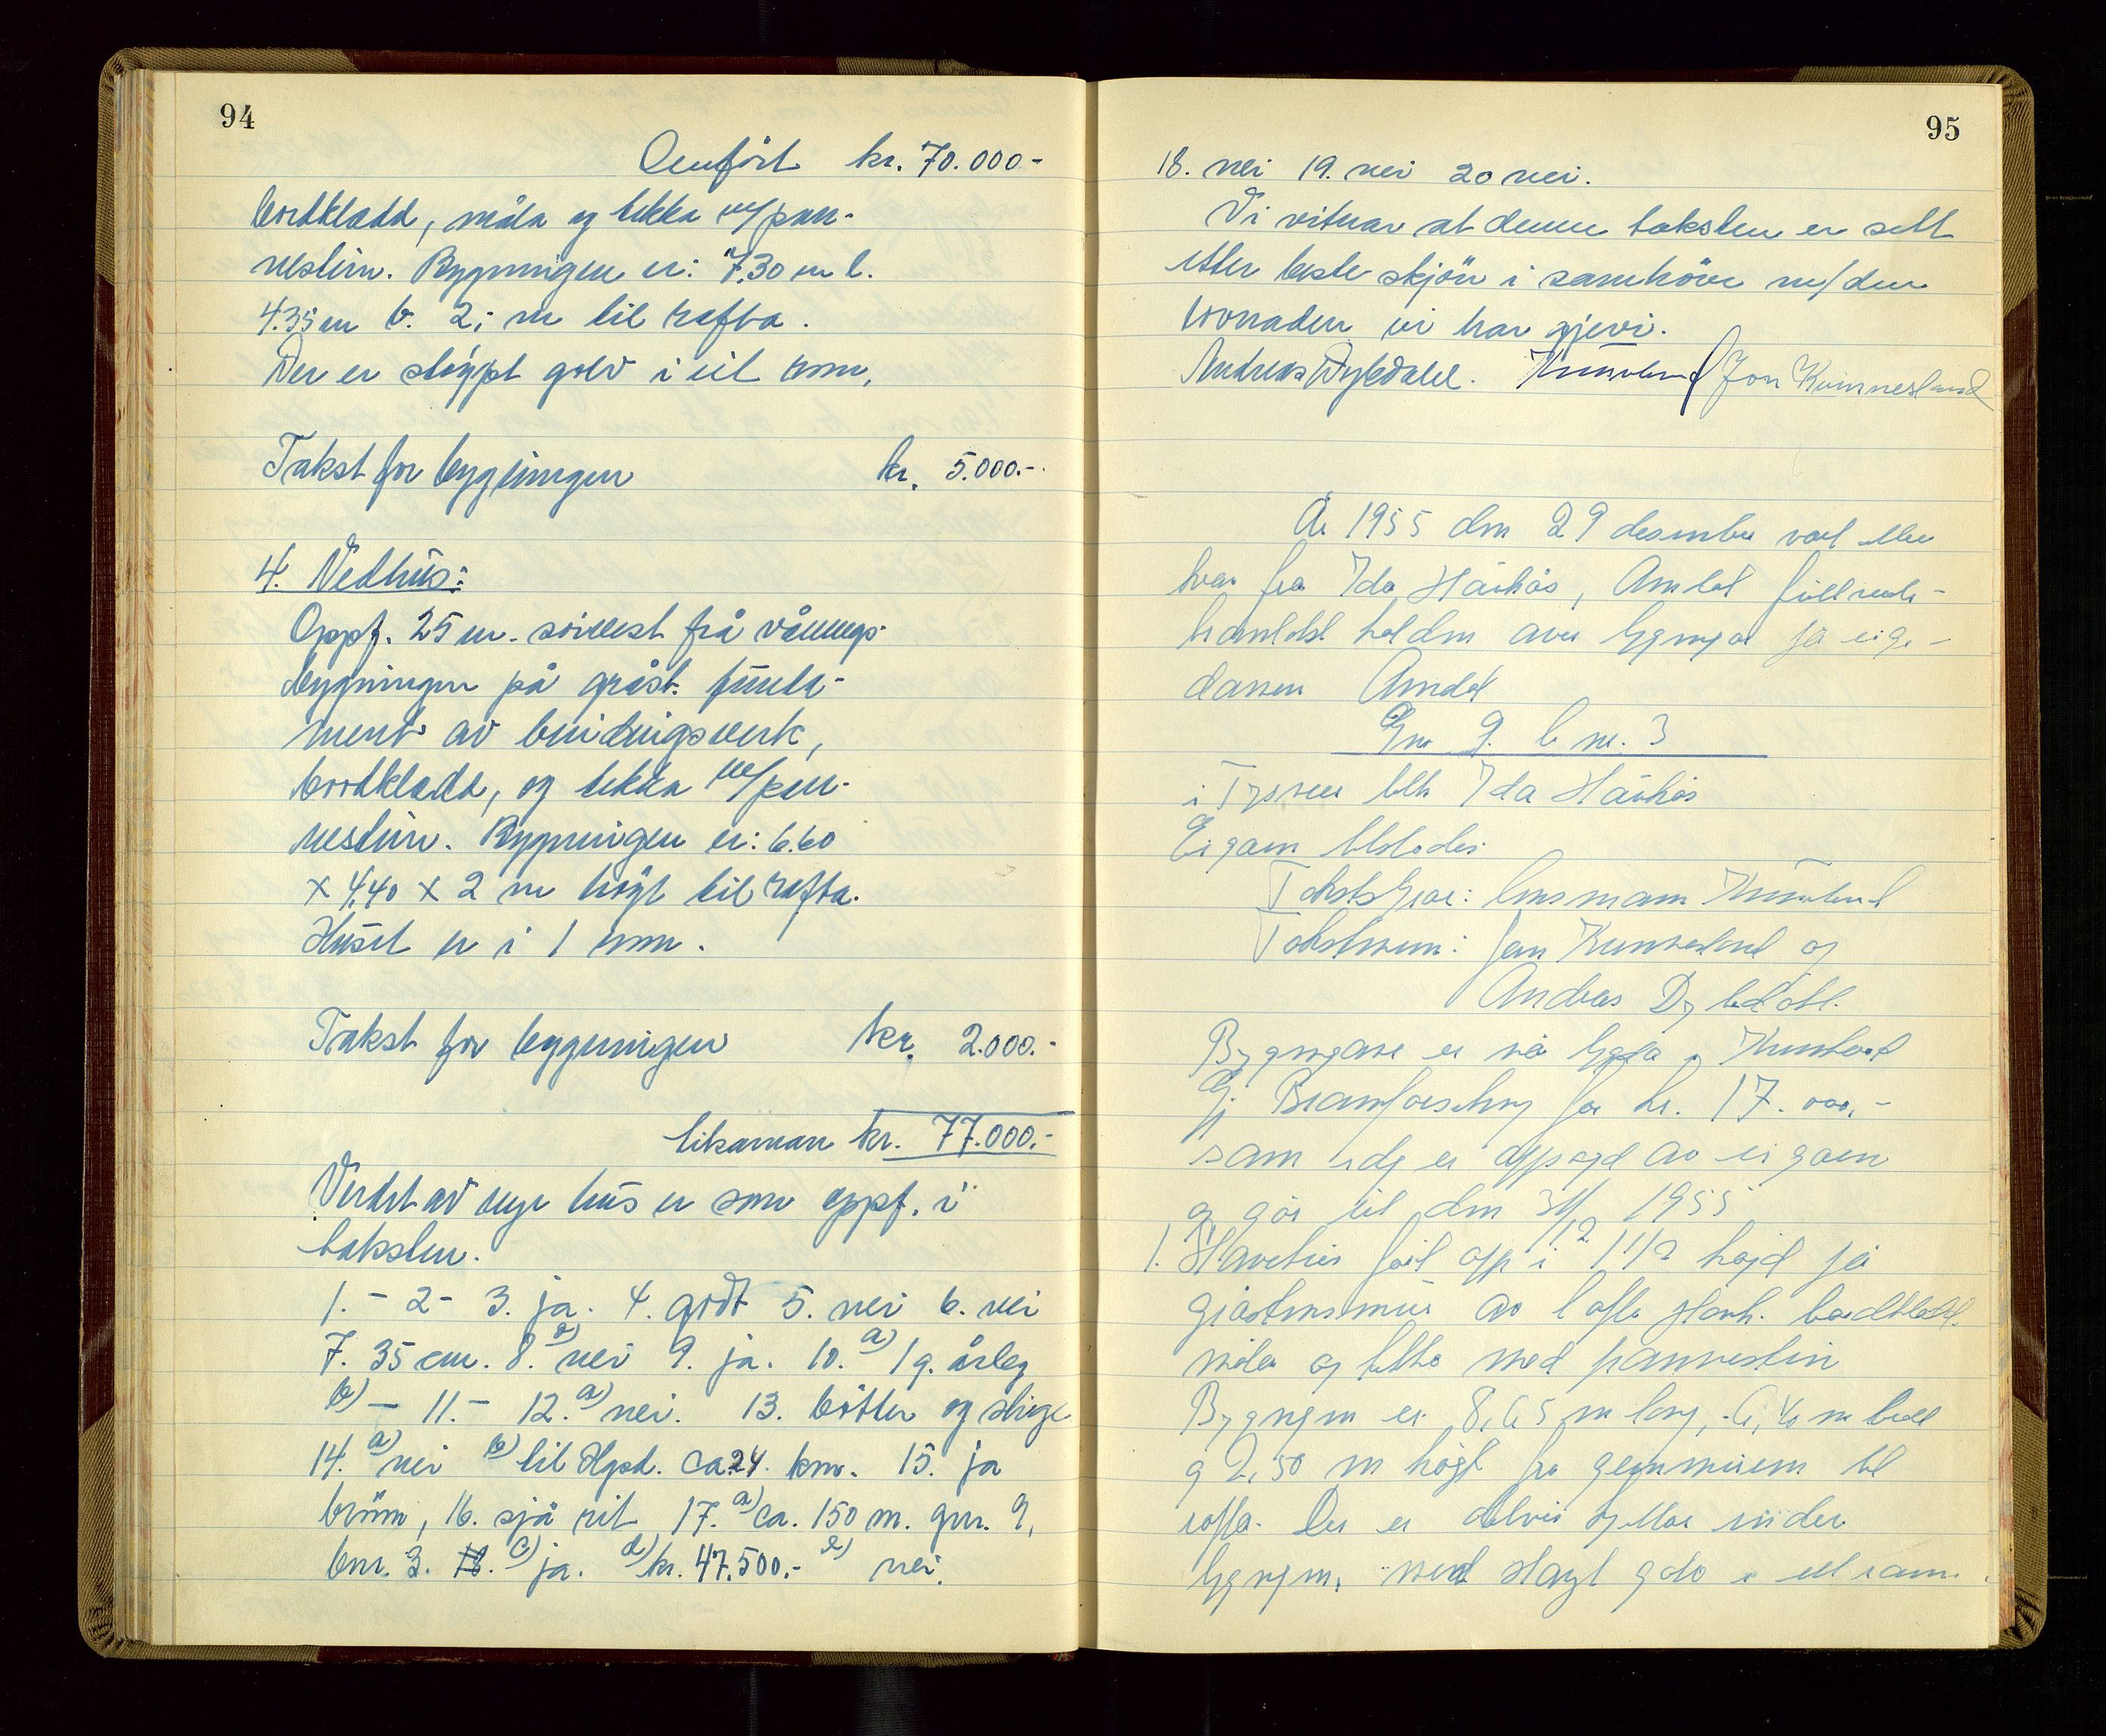 94
Omfört kr. 70.000-
bordkledd, måla og tekka m/pan-
nestein. Bygningen er: 7.30 m l.
4.35 m b. 2,- m til rafta.
Der er støypt golv i eit rom,
Takst for bygningen kr. 5.000.-
4. Vedhus:
Oppf. 25 m. sörvest frå vånings-
bygningen på gråst. funda-
ment av bindingsverk,
bordkledd, og tekka m/pan-
nestein. Bygningen er: 6.60
x 4,40 x 2 m högt til rafta.
Huset er i 1 rom.
Takst for bygningen kr. 2.000.-
tilsaman kr. 77.000.-
Verdet av nye hus er som oppf. i
taksten.
1. - 2 - 3. ja. 4. godt 5. nei 6. nei
7. 35 cm. 8. a) nei 9. ja. 10. a) 1 g. årleg
b) - 11. - 12. a) nei. 13. bötter og stige
14. a) nei b) til Hgsd. ca. 24. km. 15. ja
brönn, 16. sjå rit 17. a) ca. 150 m. gnr. 9,
bnr. 3. 18. c) ja. d) kr. 47.500.- e) nei.
95
18. nei 19. nei 20 nei.
Vi vitnar at denne taksten er sett
etter beste skjön i samhöve m/den
vonnaden vi har gjevi.
Andreas Dybdahl. Jon Kvinnesland
År 1955 den 29 desember vart etter
krav fra Ida Håvås, Amdal fullsende-
brantakst halden over bygningar på eige-
domen Amdal
Gnr 9. b nr. 3
i Tysvær tilh Ida Håvås
Eigaren tilstades
Takststyrar: lensmann
Takstmenn: Jon Kvinnesland og
Andreas Dybdahl.
Bygningane er nå trygda i
Gj Brannforsikring for kr. 17.000,-
som idag er oppsagd av eigaren
og går ut den 31/12 1955
1. Våvehus fört opp i 1 1/2 högd på
gråsteinsmur av lafta bordkledd.
måla og tekka med pannestein
Bygningen er 8,65 m lang, 6,40 m breid
og 2,50 m högt fra grunnmuren til
rafta. Der er delvis kjellar under
bygningen, med støypt golv i eit rom.